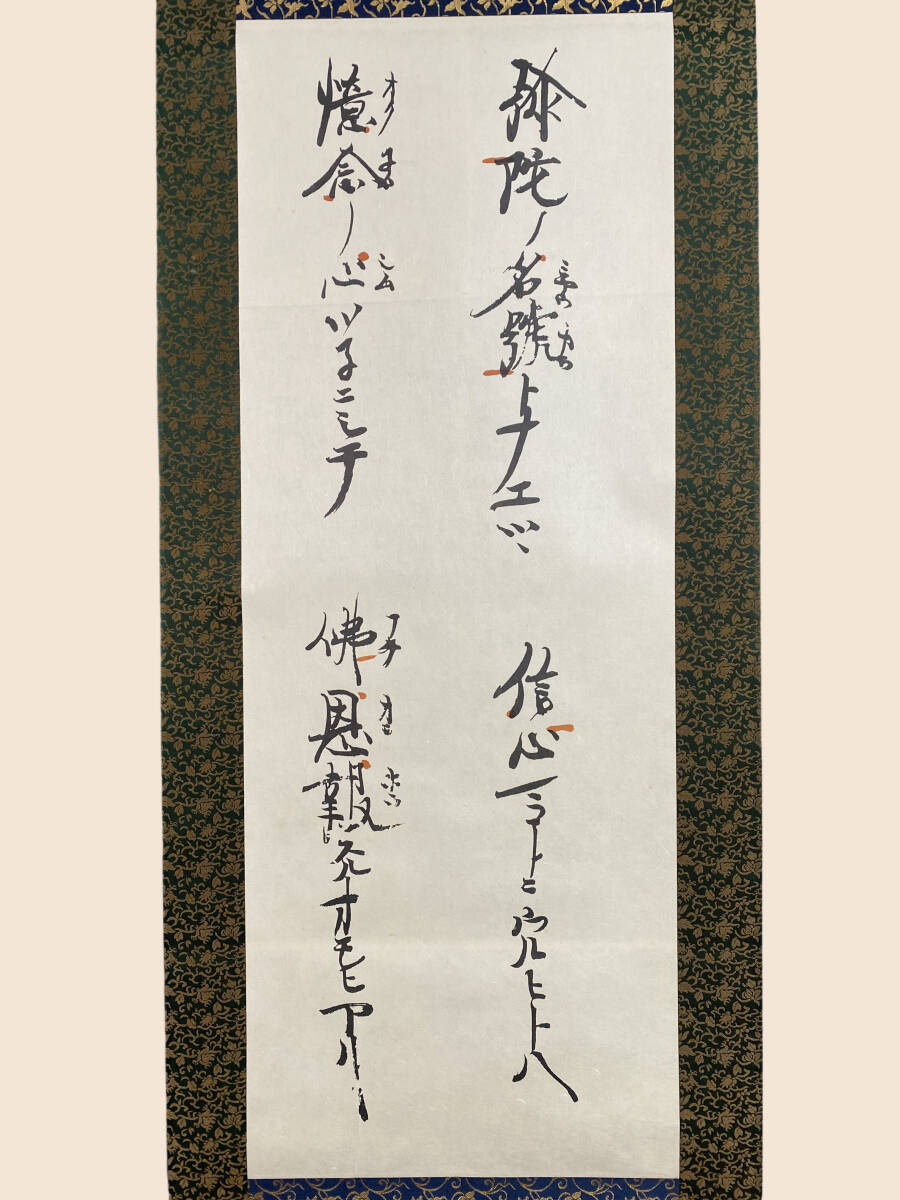 彌陀ノ名號トナエツヽ 信心マコトニウルヒトハ
憶念ノ心ツネニシテ 佛恩報スルオモヒアリ